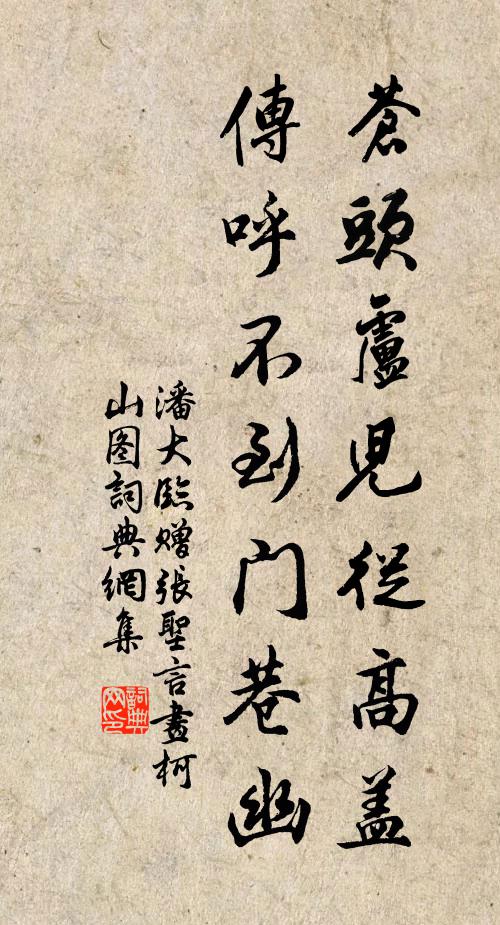 蒼頭盧児從高盖
傳呼不到门巷幽
潘大臨赠張聖言畫柯
山图詞典網集
詞典网印